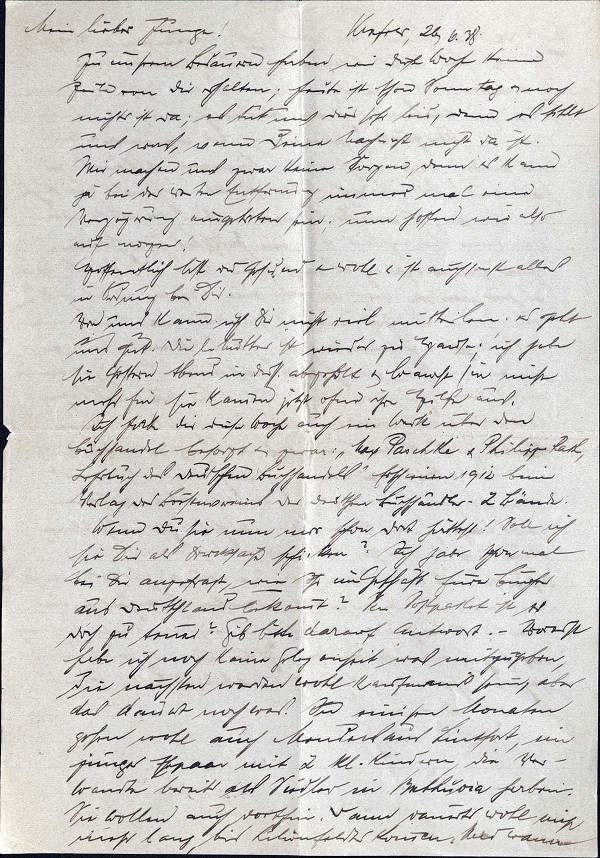 Mein lieber Junge! Krefeld, 26. 6. 38.
Zu unserem Bedauern haben wir diese Woche keine
Zeile von Dir erhalten; heute ist schon Sonntag & noch
nichts ist da; es tut uns dies sehr leid, denn es fehlt
uns was, wenn Deine Nachricht nicht da ist.
Wir machen uns zwar keine Sorgen, denn es kann
ja bei der weiten Entfernung immer mal eine
Verzögerung eingetreten sein. Nun hoffen wir also
auf morgen!
Hoffentlich bist Du gesund & wohl & ist auch sonst alles
in Ordnung bei Dir.
Von uns kann ich Dir nicht viel mitteilen. Es geht
uns gut. Die Mutter ist wieder zu Hause. Ich habe
sie gestern Abend in abgeholt & braucht sie nicht
mehr hin. Sie kamen jetzt ohne ihre Hilfe aus.
Ich habe Dir diese Woche auch ein Werk über den
Buchhandel besorgt & zwar: "Max Paschke & Philipp Rath,
Lehrbuch des deutschen Buchhandels" erschienen 1912 beim
Verlag des Börsenvereins der deutschen Buchhändler. 2 Bände.
Wenn Du sie nun nur schon dort hättest! Soll ich
sie Dir als Drucksache schicken? Ich habe schon mal
bei Dir angefragt, wie Ihr im Geschäft Eure Bücher
aus Deutschland bekommt? Im Postpaket ist es
doch zu teuer? Gib bitte darauf Antwort. – Vorerst
habe ich noch keine Gelegenheit was mitzugeben,
die nächsten werden wohl Kaufmanns sein, aber
das dauert noch was. In einigen Monaten
gehen wohl auch aus Lintfort, ein
junges Ehepaar mit 2 kl. Kindern, die Ver-
wandte bereits als Siedler in haben.
Sie wollen auch dorthin. Dann dauert es wohl nicht
mehr lang bis kommen. Und wann